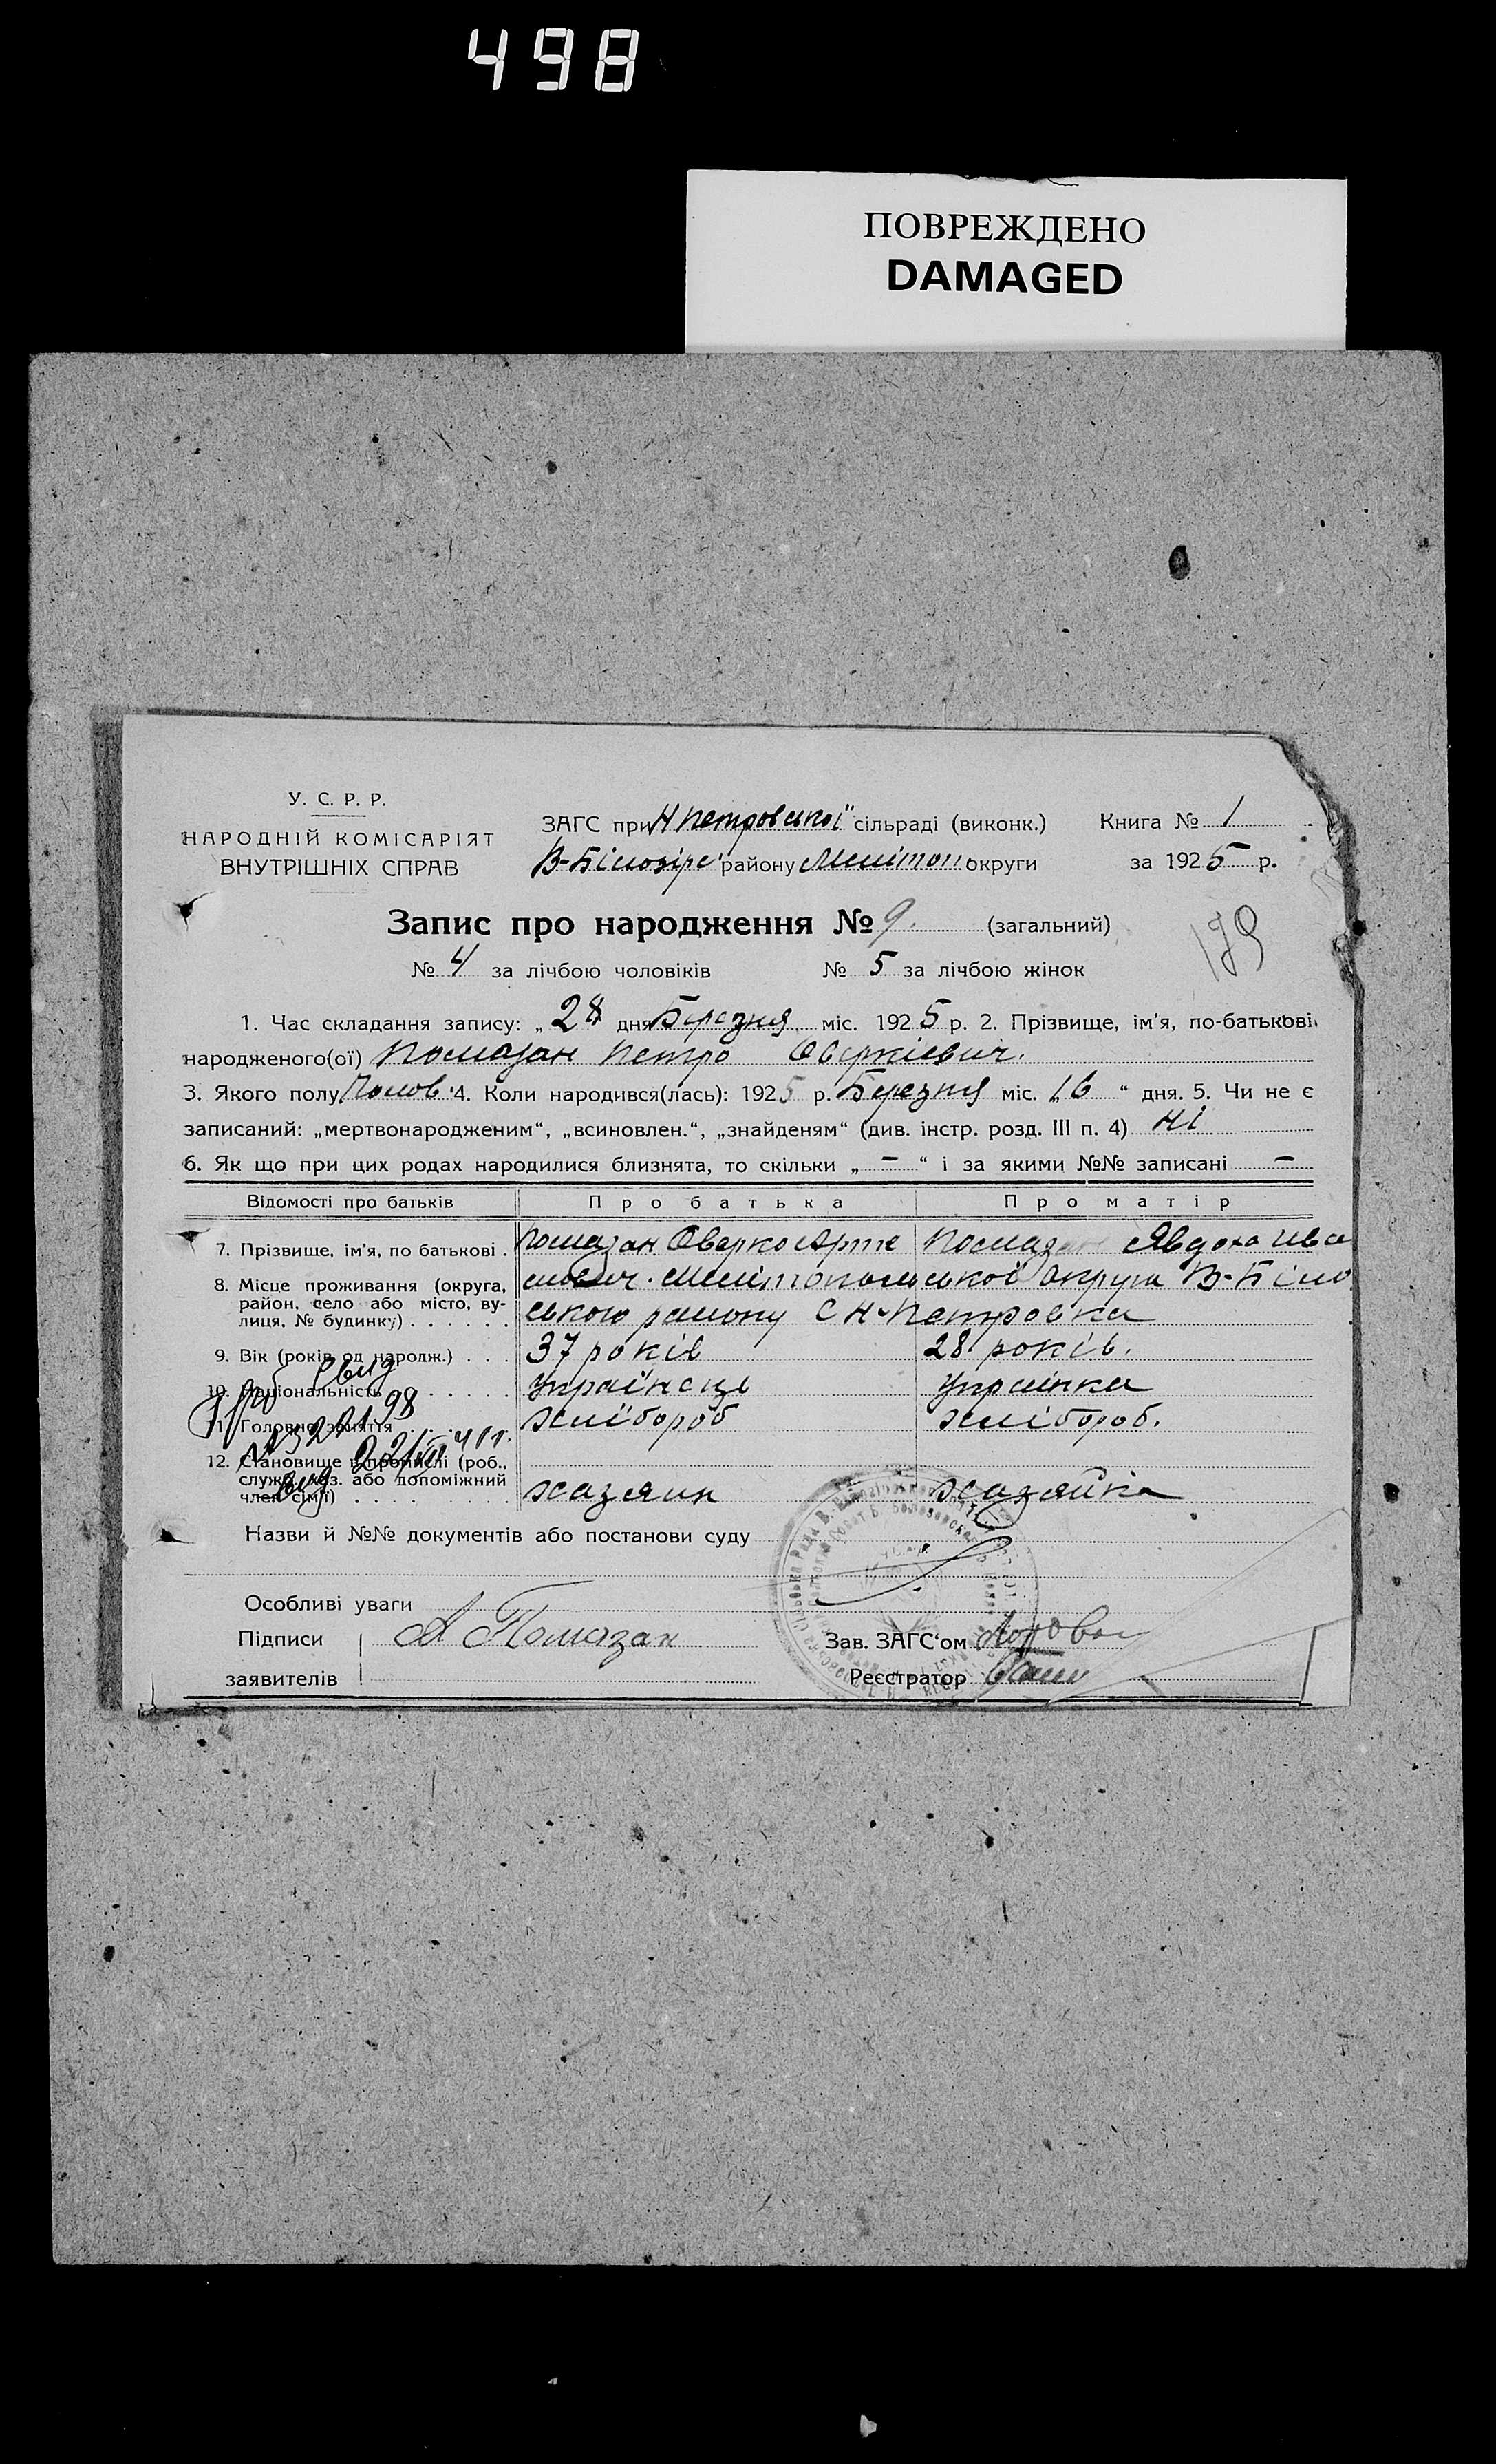 498
ПОВРЕЖДЕНО
DAMAGED
У. С. Р. Р.
НАРОДНІЙ КОМІСАРІЯТ
ВНУТРІШНІХ СПРАВ
ЗАГС при Н Петровської сільраді (виконк.) Книга № 1
В-Білозірс району Мелітоп округи за 1925 р.
Запис про народження № 9. (загальний)
179
№ 4 за лічбою чоловіків № 5 за лічбою жінок
1. Час складання запису: „28 дня Березня міс. 1925 р. 2. Прізвище, ім'я, по-батькові
народженого(ої) Помазан Петро Оверкієвич.
3. Якого полу Чолов. 4. Коли народився(лась): 1925 р. Березня міс. 16 “ дня. 5. Чи не є
записаний: „мертвонародженим“, „всиновлен.“, „знайденям“ (див. інстр. розд. III п. 4) Ні
6. Як що при цих родах народилися близнята, то скільки „ – “ і за якими №№ записані –
Відомості про батьків Про батька Про матір
7. Прізвище, ім'я, по батькові . Помазан Оверко Арте Помазан Явдоха Ива
8. Місце проживання (округа, мович. Мелітопольської округи В-Біло
район, село або місто, ву-
лиця, № будинку) . . . . . . ського району С Н-Петровка
9. Вік (років од народж.) . . . 37 років 28 років.
10. Національність . . . . . . Українець Українка
11. Головне заняття . . . . хлібороб хлібороб.
12. Становище в промислі (роб.,
служб., хаз. або допоміжний
член сім'ї) . . . . . . . . хазяин хазяйка
Назви й №№ документів або постанови суду
Особливі уваги
Підписи А Помазан Зав. ЗАГС'ом
заявителів Реєстратор